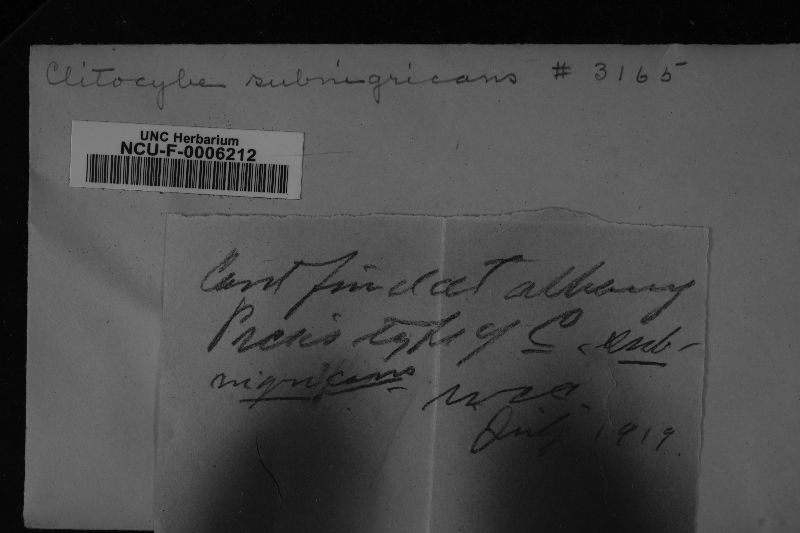 Clitocybe subnigricans # 3165
UNC Herbarium
NCU-F-0006212
Cant find at Albany
Pecks type of C. sub-
nigricans
WCC
July 1919.